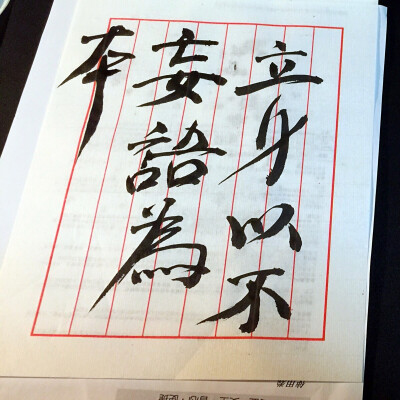 立身以不
妄語為
本